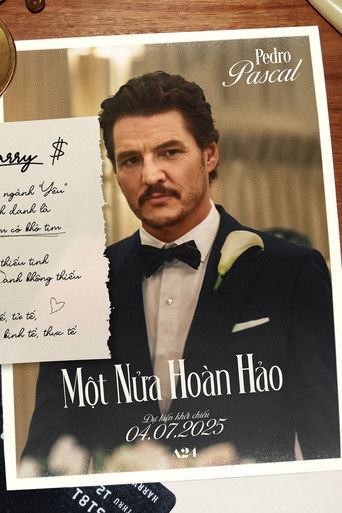 Pedro
Pascal
arry $
ngành "Yêu"
h danh là
m có khó tìm
thiếu tình
anh không thiếu
ế, tử tế,
kinh tế, thực tế
Một Nửa Hoàn Hảo
Dự kiến khởi chiếu
04.07.2025
A24
5181
THRU 12
HARRY